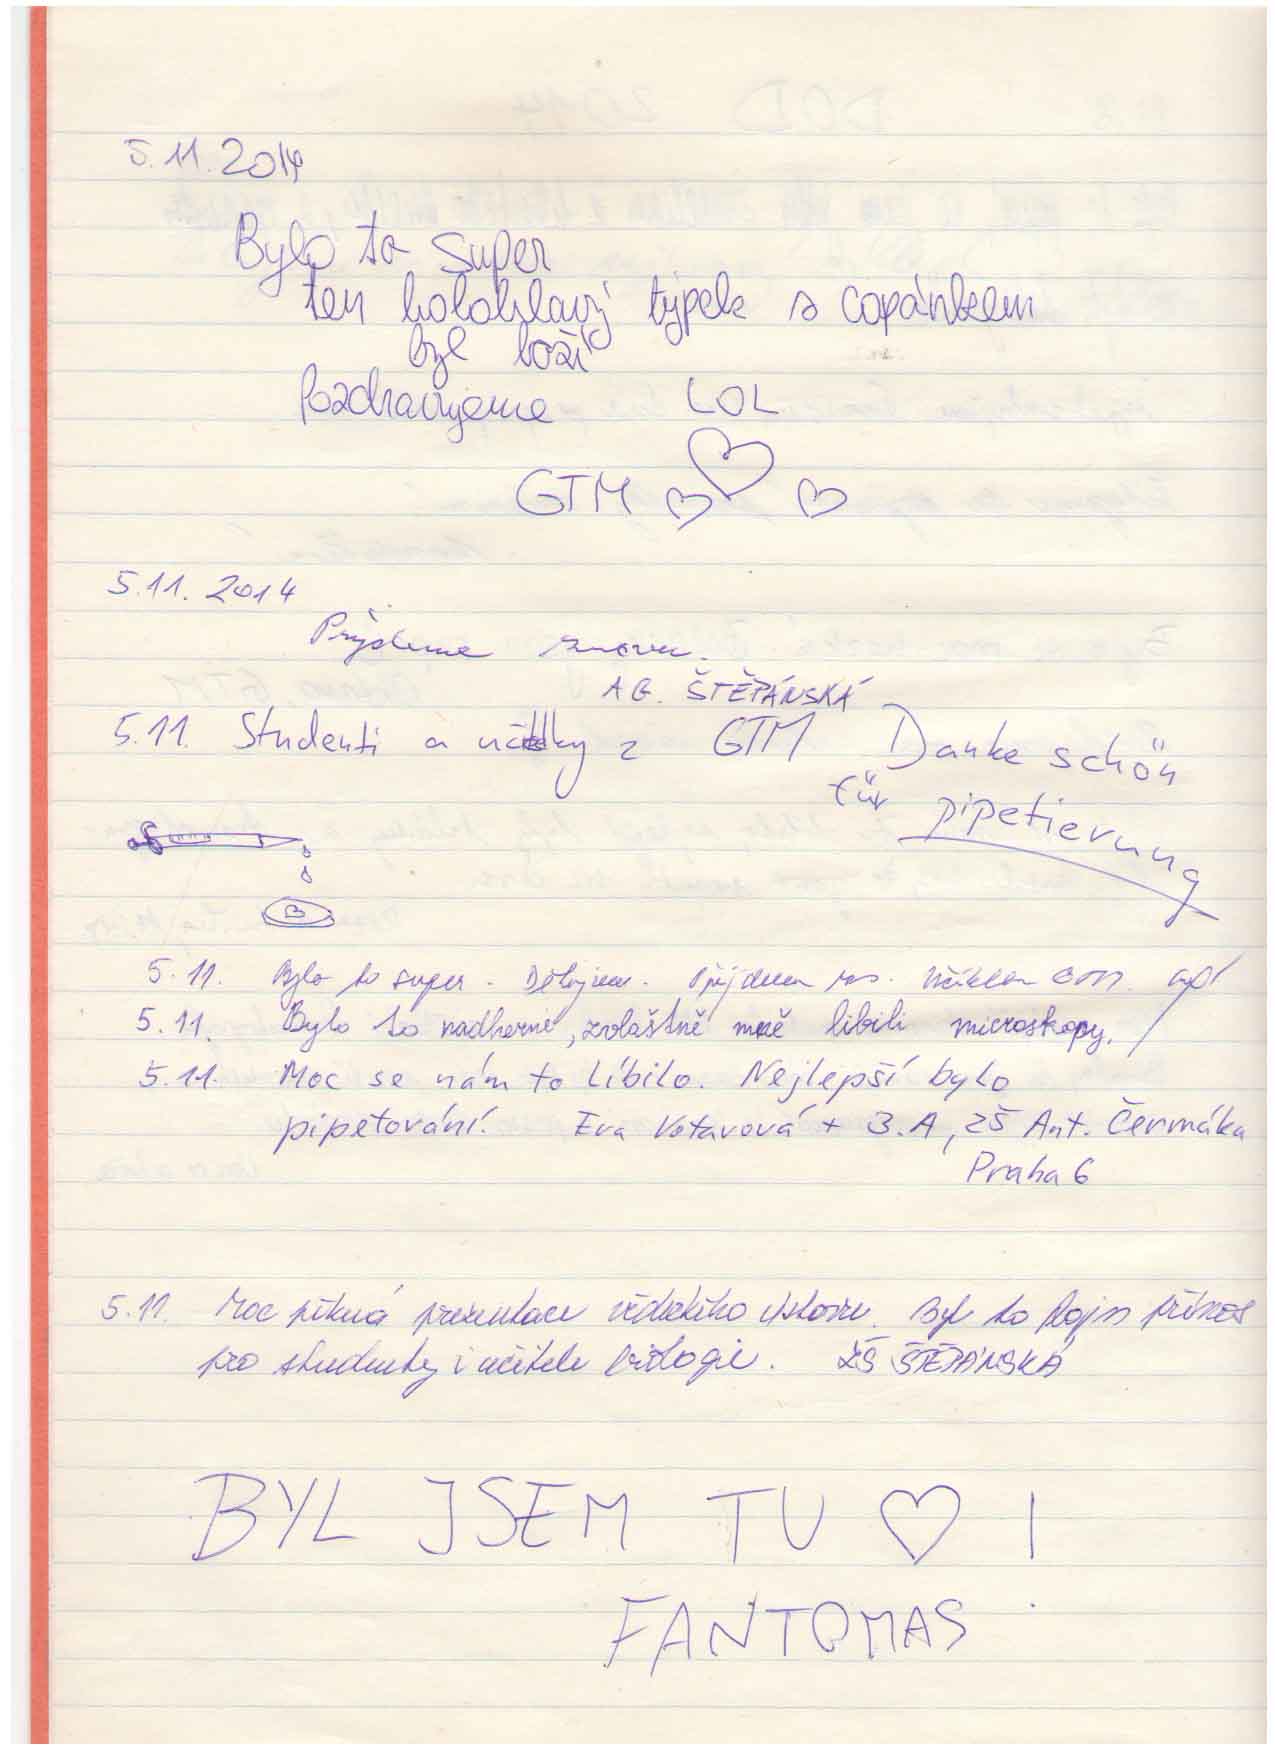 5.11.2014
Bylo to super
ten holohlavý týpek s copánkem
byl boží
Pozdravujeme LOL
GTM
5.11.2014
Přijdeme znovu.
AG. ŠTĚPÁNSKÁ
5.11. Studenti a učitelky z GTM
Danke schön
für pipetierung
5.11. Bylo to super. Děkujem. Přijdem zas.
5.11. Bylo to nadherné, zvolaštně mně libili microskopy.
5.11. Moc se nám to líbilo. Nejlepší bylo
pipetování. Eva Votavová + 3.A, ZŠ Ant. Čermáka
Praha 6
5.11. Moc pěkná prezentace vědeckého ústavu. Byl to fajn přínos
pro studenty i učitele biologie. ZŠ ŠTĚPÁNSKÁ
BYL JSEM TU !
FANTOMAS